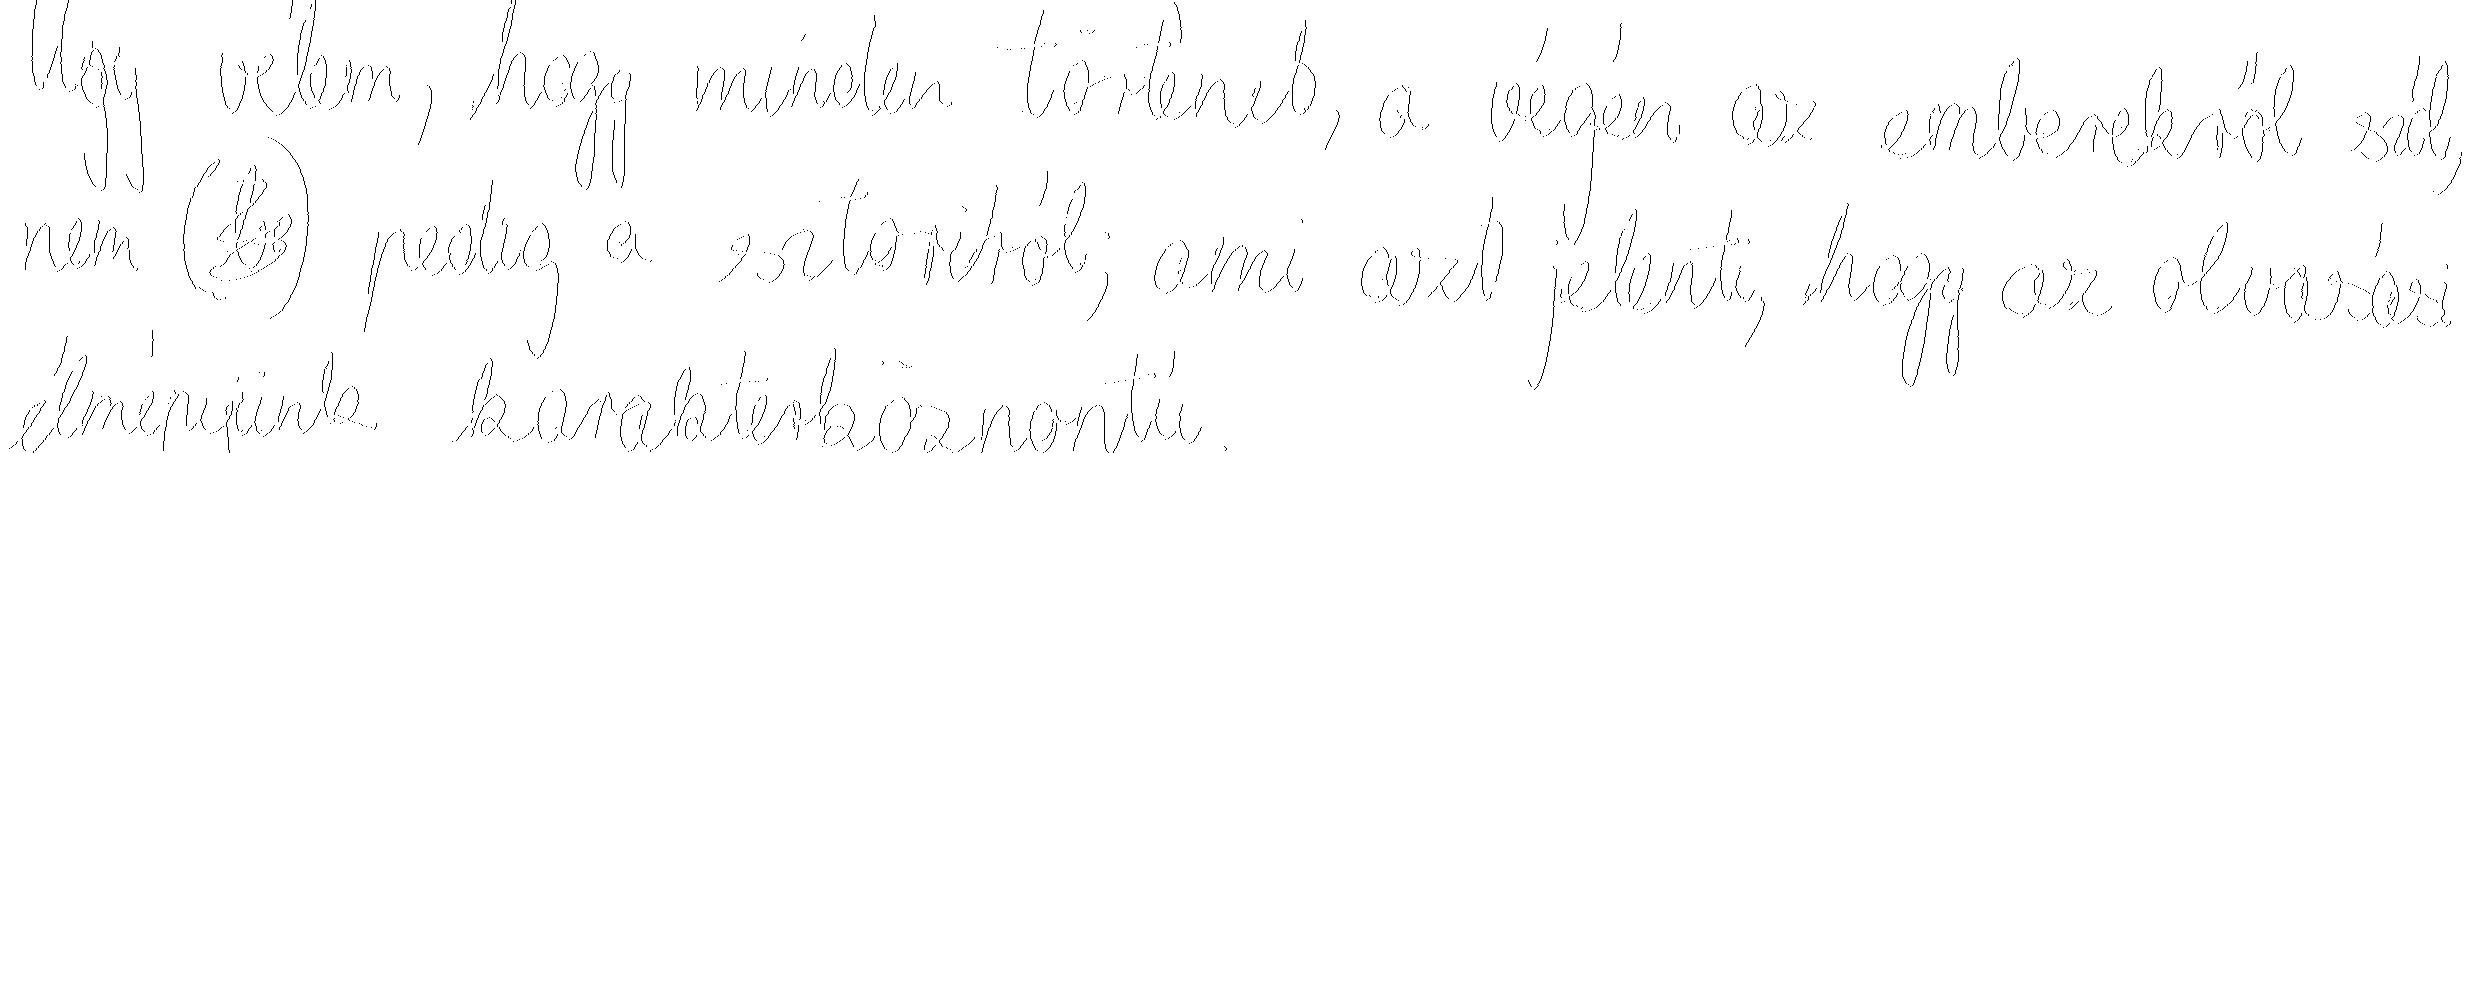 Úgy vélem, hogy minden történet, a végén az emberekről szól,
nem pedig a sztoriról, ami azt jelenti, hogy az olvasási
élményünk karakterközpontú.